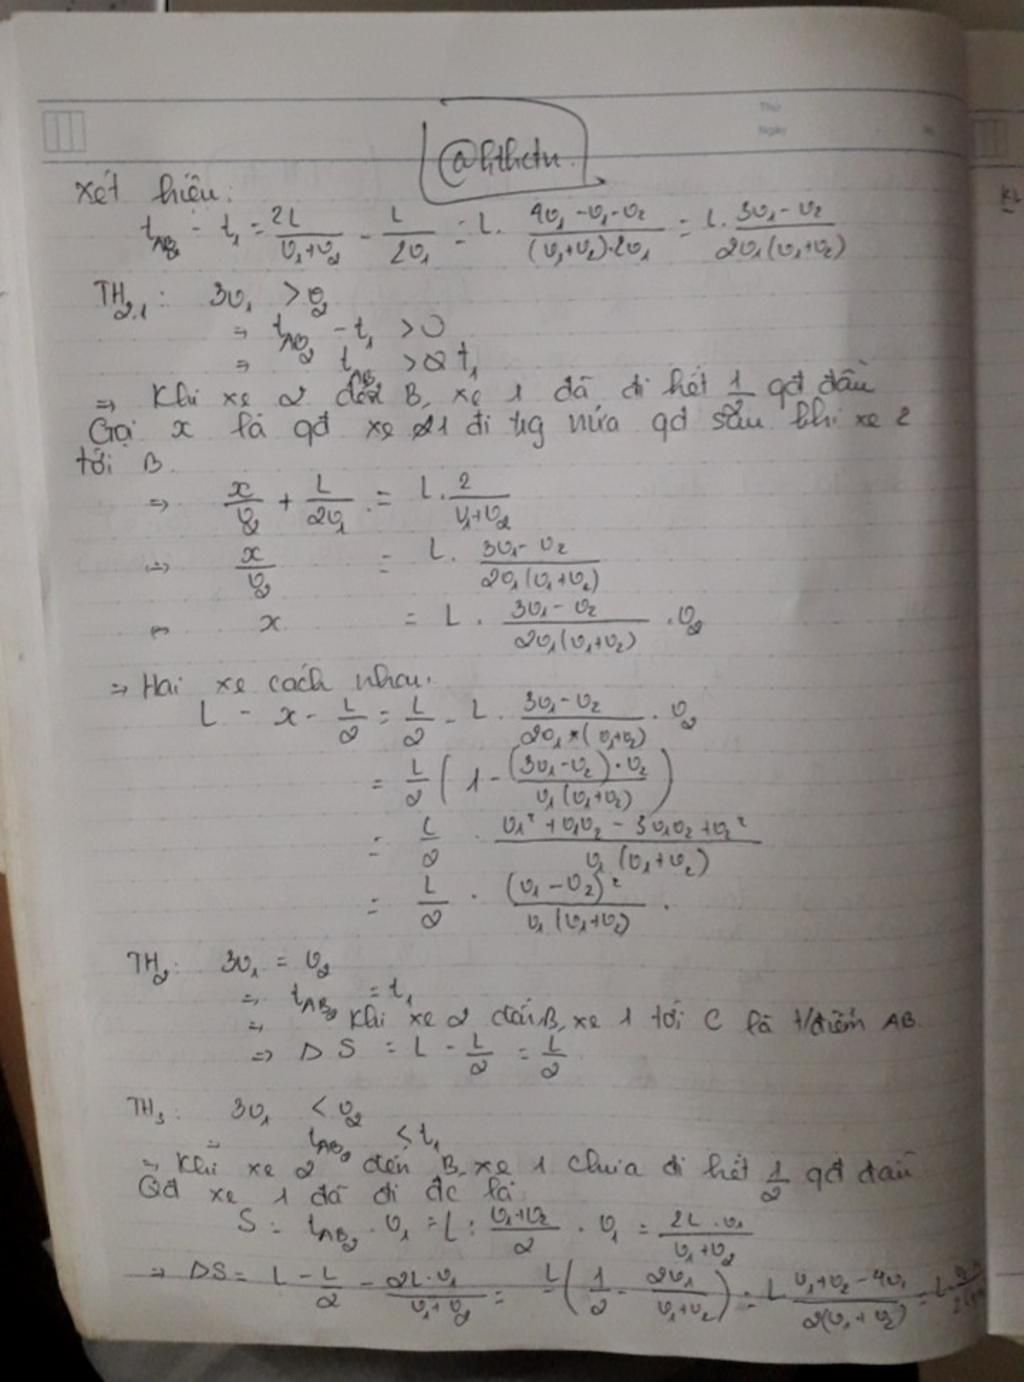 Thứ
Ngày
@hthctn
KL
Xét hiệu:
t_{AB_2} - t_1 = \frac{2L}{v_1+v_2} - \frac{L}{2v_1} = L \cdot \frac{4v_1-v_1-v_2}{(v_1+v_2) \cdot 2v_1} = L \cdot \frac{3v_1-v_2}{2v_1(v_1+v_2)}
TH_{2.1}: 3v_1 > v_2
⇒ t_{AB_2} - t_1 > 0
⇒ t_{AB_2} > t_1
⇒ Khi xe 2 đến B, xe 1 đã đi hết \frac{1}{2} qđ đầu
Gọi x là qđ xe 1 đi trg nửa qđ sau khi xe 2
tới B.
⇒ \frac{x}{v_2} + \frac{L}{2v_1} = L \cdot \frac{2}{v_1+v_2}
⇔ \frac{x}{v_2} = L \cdot \frac{3v_1-v_2}{2v_1(v_1+v_2)}
⇔ x = L \cdot \frac{3v_1-v_2}{2v_1(v_1+v_2)} \cdot v_2
⇒ Hai xe cách nhau:
L - x - \frac{L}{2} = \frac{L}{2} - L \cdot \frac{3v_1-v_2}{2v_1*(v_1+v_2)} \cdot v_2
= \frac{L}{2} ( 1 - \frac{(3v_1-v_2) \cdot v_2}{v_1(v_1+v_2)} )
= \frac{L}{2} \cdot \frac{v_1^2+v_1v_2-3v_1v_2+v_2^2}{v_1(v_1+v_2)}
= \frac{L}{2} \cdot \frac{(v_1-v_2)^2}{v_1(v_1+v_2)}.
TH_2: 3v_1 = v_2
⇒ t_{AB_2} = t_1
⇒ Khi xe 2 đến B, xe 1 tới C là t/điểm AB
⇒ DS = L - \frac{L}{2} = \frac{L}{2}
TH_3: 3v_1 < v_2
⇒ t_{AB_2} < t_1
⇒ Khi xe 2 đến B, xe 1 chưa đi hết \frac{1}{2} qđ đầu
Qđ xe 1 đã đi đc là
S = t_{AB_2} \cdot v_1 = L : \frac{v_1+v_2}{2} \cdot v_1 = \frac{2L \cdot v_1}{v_1+v_2}
⇒ DS = L - \frac{L}{2} - \frac{2L \cdot v_1}{v_1+v_2} = L ( \frac{1}{2} - \frac{2v_1}{v_1+v_2} ) = L \frac{v_1+v_2-4v_1}{2(v_1+v_2)} = L